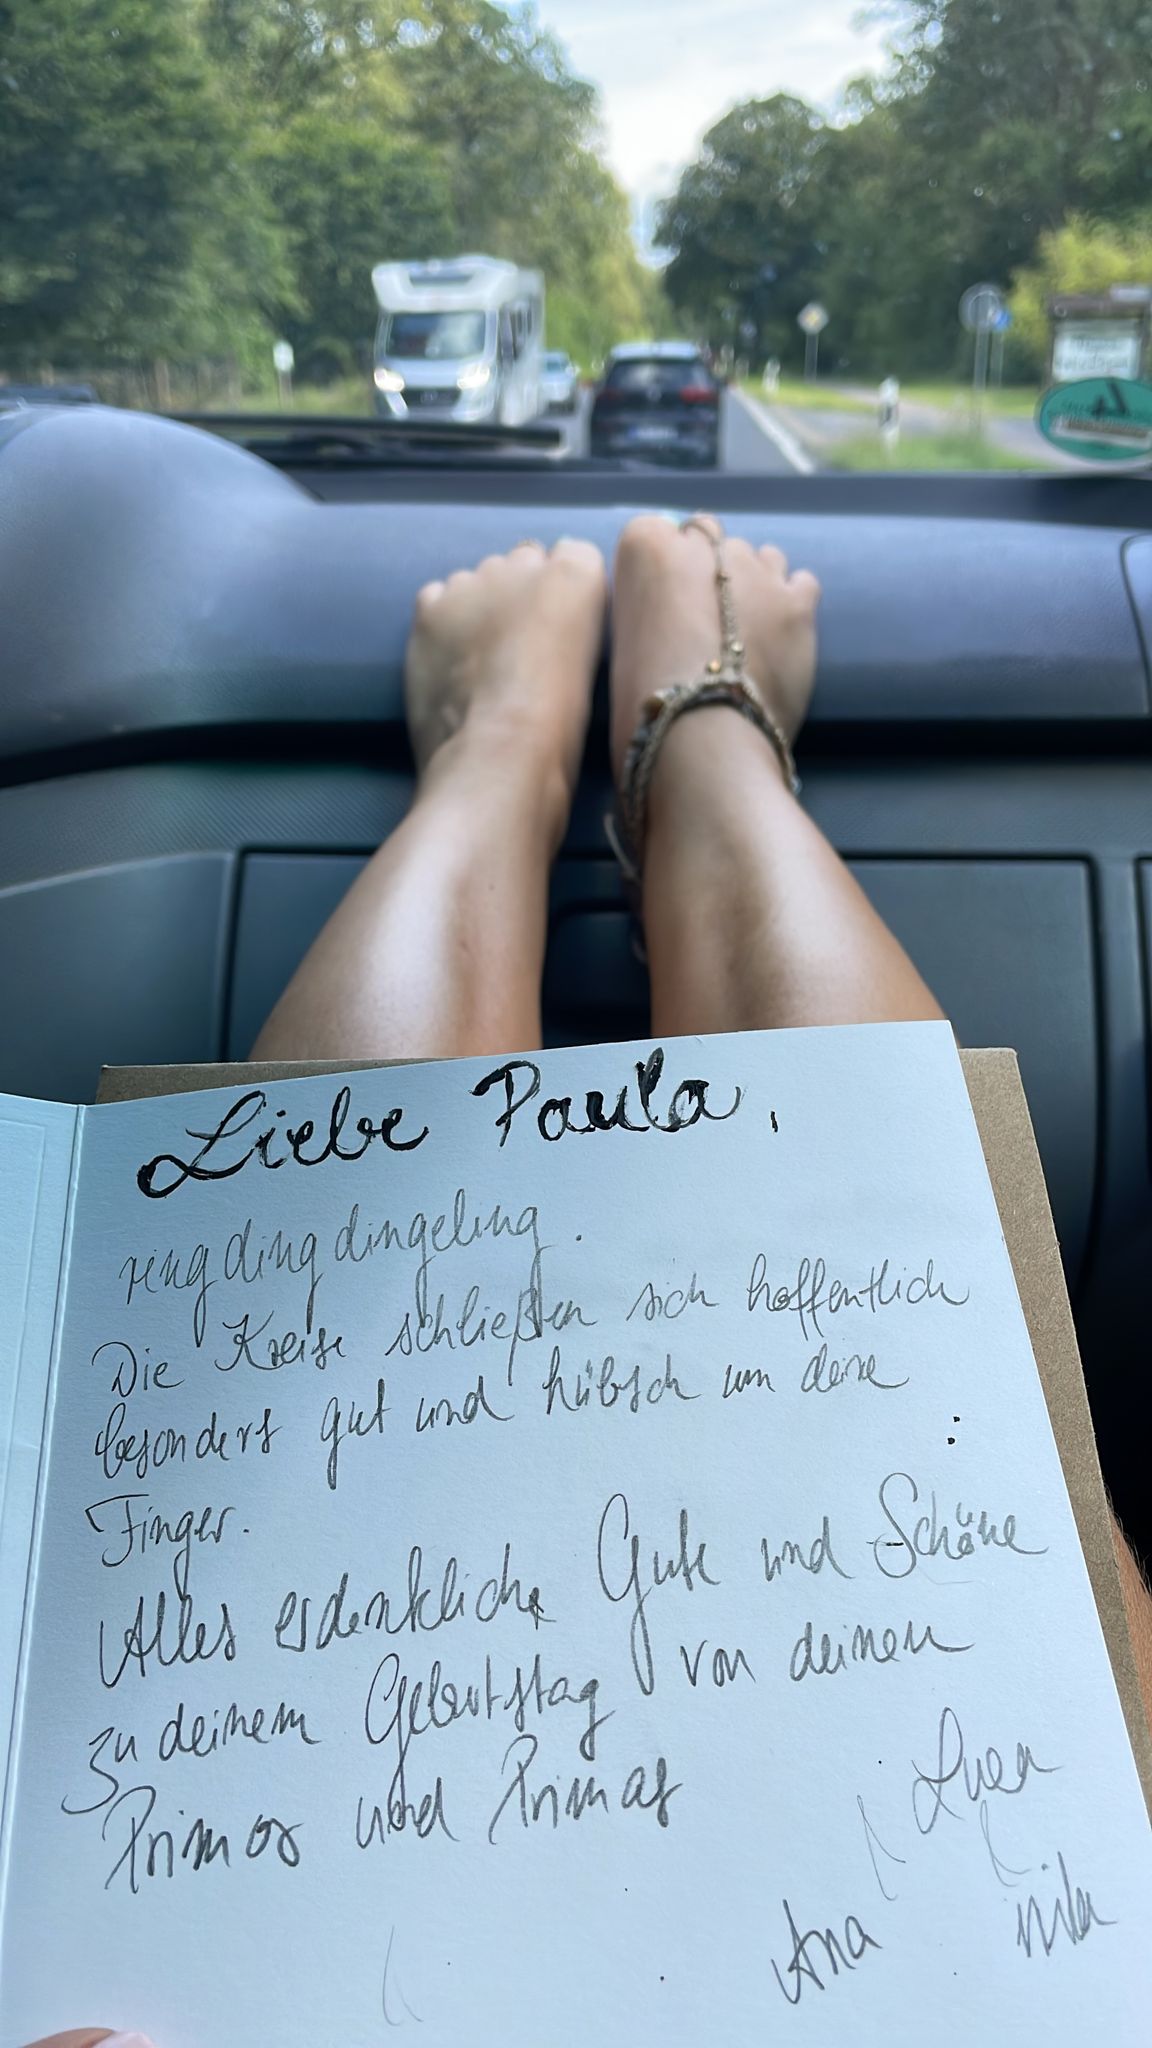 Liebe Paula,
ringdingdingeling.
Die Kreise schließen sich hoffentlich
besonders gut und hübsch um deine
Finger.
Alles erdenkliche Gute und Schöne
zu deinem Geburtstag von deinen
Primos und Primas
Luca
Ana